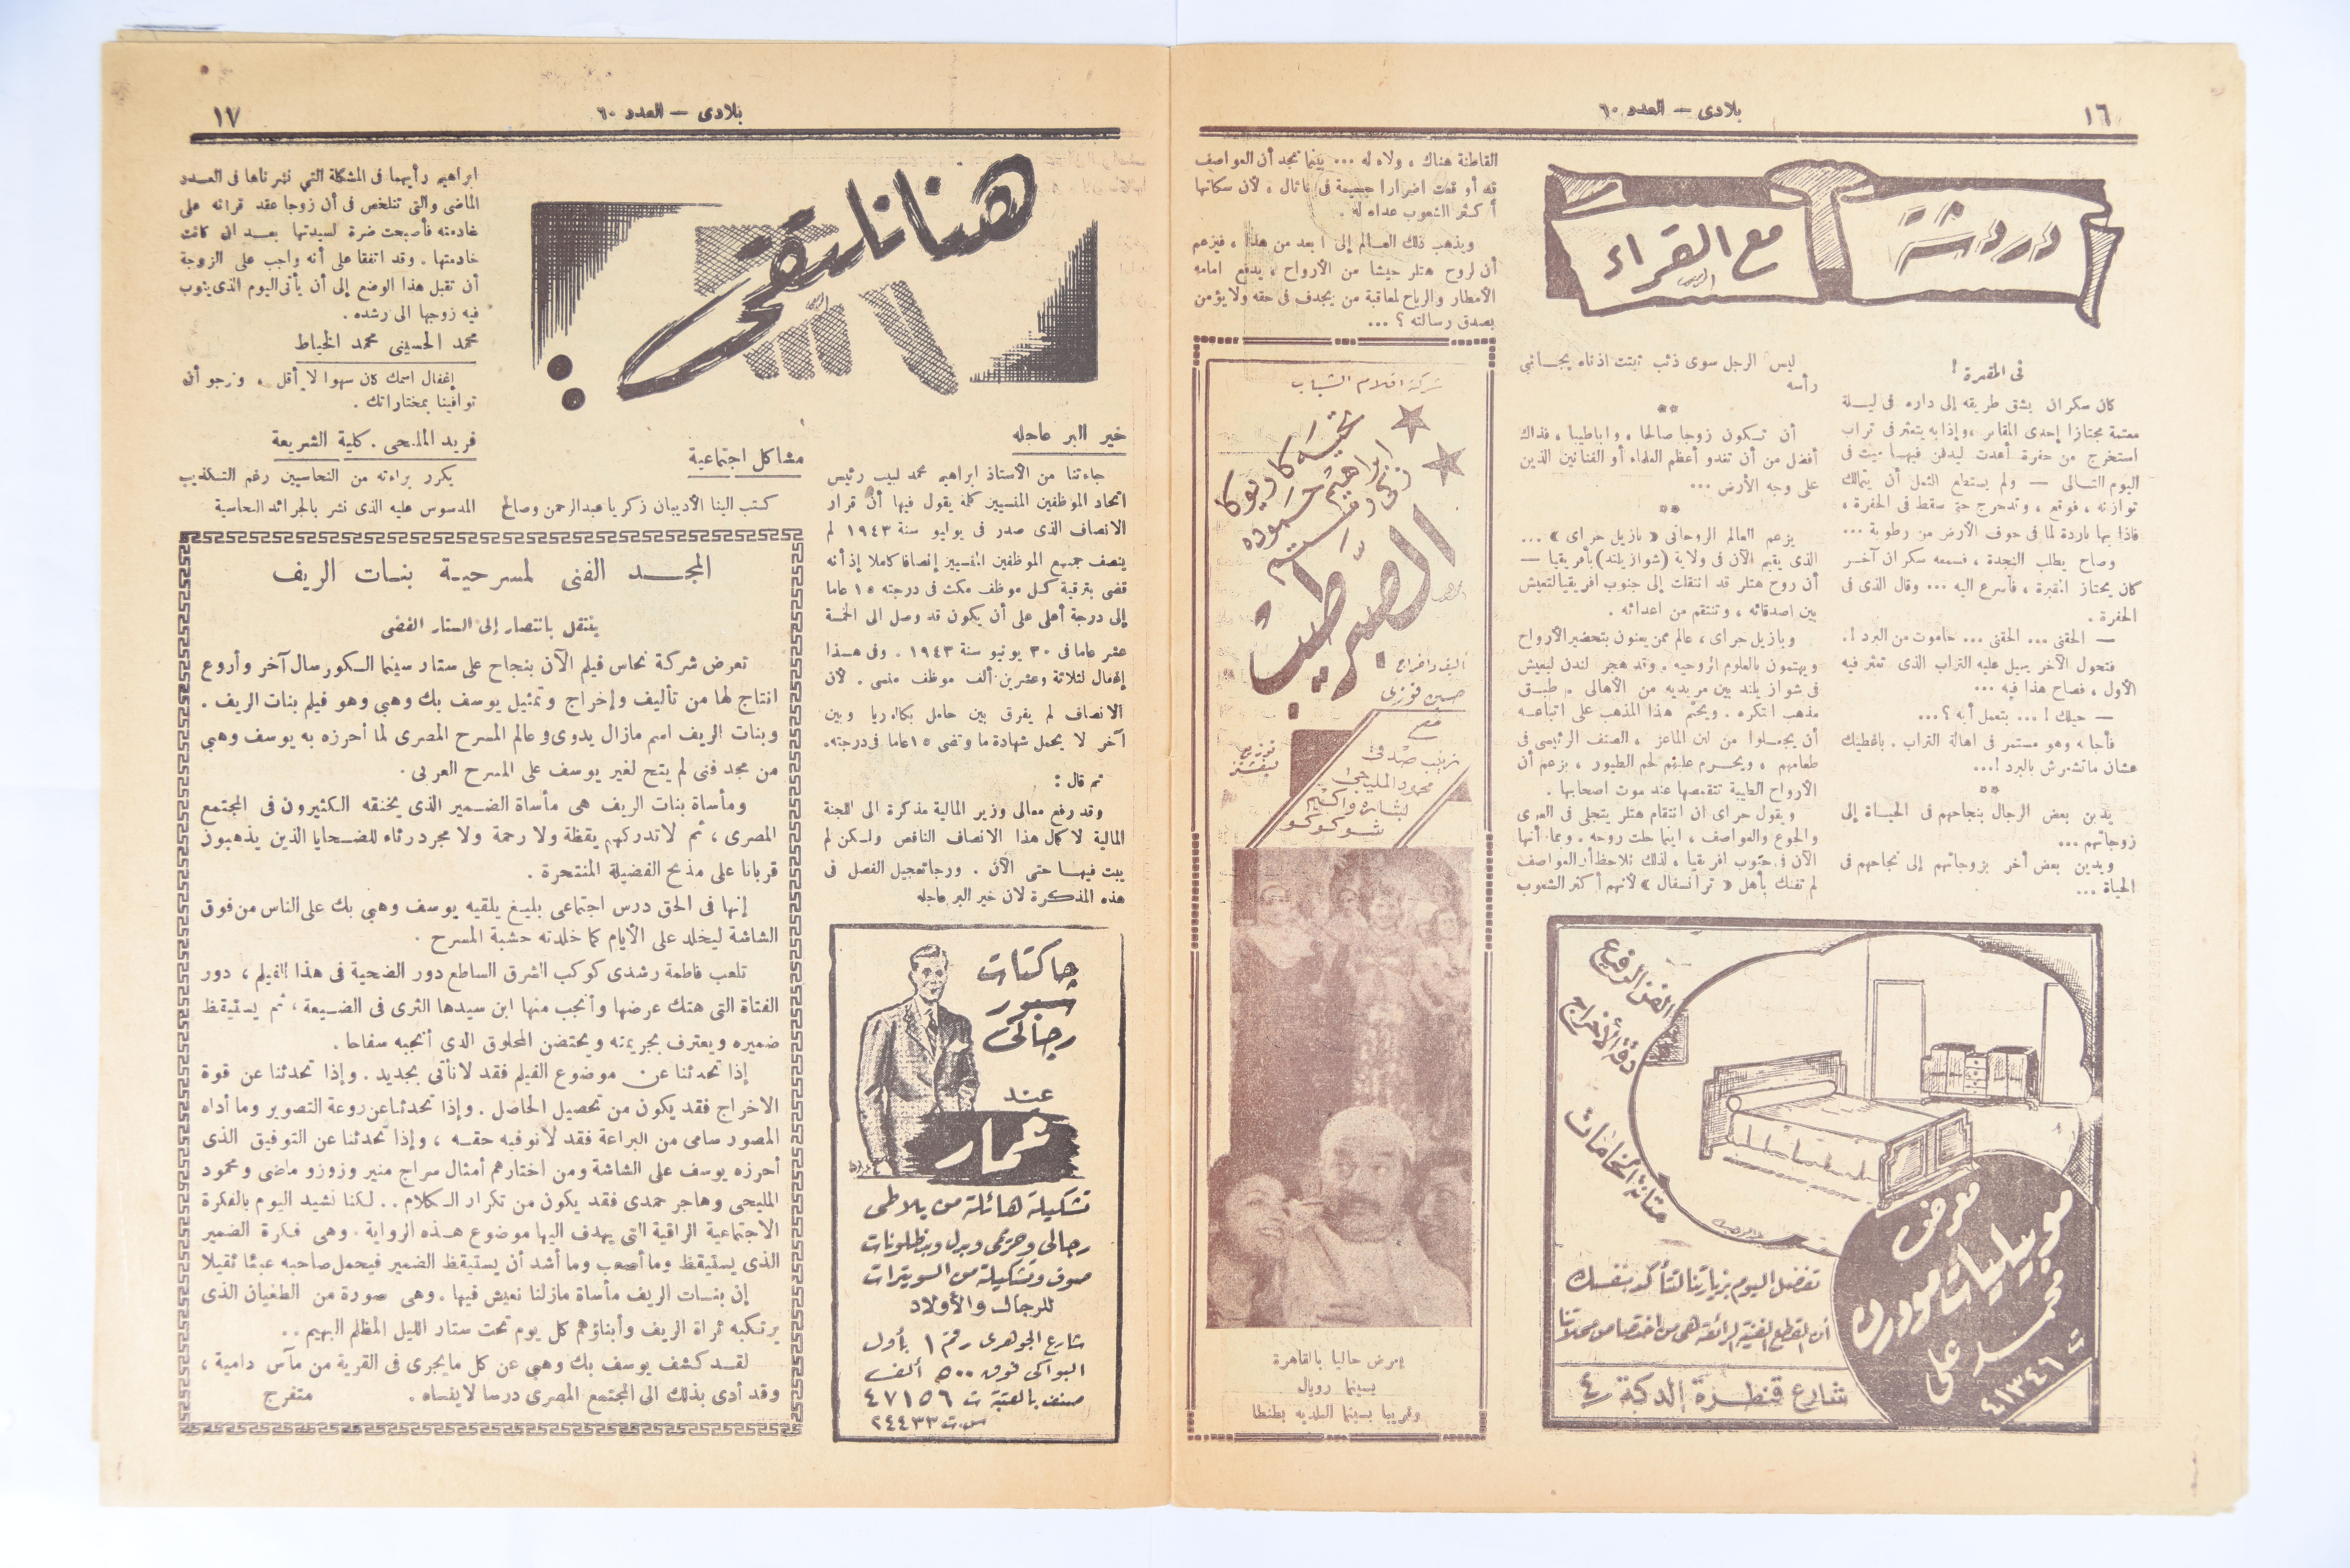 ١٦
بلادى — العدد ٦٠
دردشة
مع القراء
فى المقبرة !
كان سكران يشق طريقه إلى داره فى ليلة
معتمة مجتازا إحدى المقابر ، وإذا به يتعثر فى تراب
استخرج من حفرة أعدت ليدفن فيها ميت فى
اليوم التالى — ولم يستطع الثمل أن يتمالك
توازنه ، فوقع ، وتدحرج حتى سقط فى الحفرة ،
فاذا بها باردة لما فى جوف الأرض من رطوبة ...
وصاح يطلب النجدة ، فسمعه سكران آخر
كان يجتاز المقبرة ، فأسرع اليه ... وقال الذى فى
الحفرة .
— الحقنى ... الحقنى ... حاموت من البرد !.
فتحول الآخر يهيل عليه التراب الذى تعثر فيه
الأول ، فصاح هذا فيه ...
— حيلك ! ... بتعمل أيه ؟ ...
فأجابه وهو مستمر فى اهالة التراب . باغطيك
عشان ماتشعرش بالبرد !...
**
يدين بعض الرجال بنجاحهم فى الحياة إلى
زوجاتهم ...
ويدين بعض أخر بزوجاتهم إلى نجاحهم فى
الحياة ...
ليس الرجل سوى ذئب نبتت اذناه بجانبي
رأسه
**
أن تكون زوجا صالحا ، وابا طيبا ، فذاك
أفضل من أن تغدو أعظم العلماء أو الفنانين الذين
على وجه الأرض ...
**
يزعم العالم الروحانى « بازيل جراى » ...
الذى يقيم الآن فى ولاية (شوازيلند) بأفريقيا —
أن روح هتلر قد انتقلت إلى جنوب افريقيا لتعيش
بين اصدقائه ، وتنتقم من اعدائه .
وبازيل جراى ، عالم ممن يعنون بتحضير الأرواح
ويهتمون بالعلوم الروحيه . وقد هجر لندن ليعيش
فى شوازيلند بين مريديه من الأهالى . طبق
مذهب ابتكره . ويحتم هذا المذهب على اتباعه
أن يجعلوا من لبن الماعز ، الصنف الرئيسى فى
طعامهم ، ويحرم عليهم لحم الطيور ، بزعم أن
الأرواح الطيبة تتقمصها عند موت اصحابها .
ويقول جراى ان انتقام هتلر يتجلى فى العرى
والجوع والعواصف ، اينما حلت روحه . وبما أنها
الآن فى جنوب افريقيا ، لذلك نلاحظ أن العواصف
لم تفتك بأهل « ترانسفال » لأنهم أكثر الشعوب
القاطنة هناك ، ولاء له ... بينما نجد أن العواصف
قد أوقعت اضرارا جسيمة فى ناتال ، لأن سكانها
أكثر الشعوب عداء له .
ويذهب ذلك العالم إلى ابعد من هذا ، فيزعم
أن لروح هتلر جيشا من الأرواح ، يدفع امامه
الأمطار والرياح لمعاقبة من يجدف فى حقه ولا يؤمن
بصدق رسالته ؟ ...
شركة افلام الشباب
تحية كاريوكا
ابراهيم حموده
الصبر طيب
تأليف واخراج
حسين فوزى
مع
زينب صدقى
محمود المليجى
بشاره واكيم
شوكوكو
يعرض حاليا بالقاهرة
بسينما رويال
وقريبا بسينما البلديه بطنطا
الفن الرفيع
دقة الأخراج
متانة الخامات
معرض
موبيليات مودرن
محمد على
ت ٤١٣٤٦
تفضل اليوم بزيارتنا لتتأكد بنفسك
أن القطع الفنية الرائعة هى من اختصاص محلاتنا
شارع قنطرة الدكة ٤
١٧
بلادى — العدد ٦٠
هنا نلتقى
خير البر عاجله
جاءتنا من الأستاذ ابراهيم محمد لبيب رئيس
اتحاد الموظفين المنسيين كلمة يقول فيها أن قرار
الانصاف الذى صدر فى يوليو سنة ١٩٤٣ لم
ينصف جميع الموظفين المنسيين إنصافا كاملا إذ أنه
قضى بترقية كل موظف مكث فى درجته ١٥ عاما
إلى درجة أعلى على أن يكون قد وصل الى الخمسة
عشر عاما فى ٣٠ يونيو سنة ١٩٤٣ . وفى هذا
إغفال لثلاثة وعشرين ألف موظف منسى . لأن
الانصاف لم يفرق بين حامل بكالوريا وبين
آخر لا يحمل شهادة ما وقضى ١٥ عاما فى درجته.
ثم قال :
وقد رفع معالى وزير المالية مذكرة الى اللجنة
المالية لاكمال هذا الانصاف الناقص ولكن لم
يبت فيها حتى الآن . ورجا تعجيل الفصل فى
هذه المذكرة لان خير البر عاجله
جاكتات
سبور
رجالى
عند
تشكيلة هائلة من بلاطى
رجالى وحريمى وبدل وبنطلونات
صوف وتشكيلة من السويترات
للرجال والأولاد
شارع الجوهرى رقم ١ بأول
البواكى فوق ٥٠٠ ألف
صنف بالعتبة ت ٤٧١٥٦
س.ت ٢٤٤٣٣
مشاكل اجتماعية
كتب الينا الأديبان زكريا عبدالرحمن وصالح
ابراهيم رأيهما فى المشكلة التي نشرناها فى العدد
الماضى والتى تتلخص فى أن زوجا عقد قرانه على
خادمته فأصبحت ضرة لسيدتها بعد ان كانت
خادمتها . وقد اتفقا على أنه واجب على الزوجة
أن تقبل هذا الوضع إلى أن يأتى اليوم الذى يثوب
فيه زوجها الى رشده .
محمد الحسينى محمد الخياط
إغفال اسمك كان سهوا لا أقل ، ونرجو أن
توافينا بمختاراتك .
فريد المليحى . كلية الشريعة
يكرر براءته من النحاسيين رغم التكذيب
المدسوس عليه الذى نشر بالجرائد النحاسية
المجد الفنى لمسرحية بنات الريف
ينتقل بانتصار إلى الستار الفضى
تعرض شركة نحاس فيلم الآن بنجاح على ستار سينما الكورسال آخر وأروع
انتاج لها من تأليف وإخراج وتمثيل يوسف بك وهبي وهو فيلم بنات الريف .
وبنات الريف اسم مازال يدوى وعالم المسرح المصرى لما أحرزه به يوسف وهبي
من مجد فنى لم يتح لغير يوسف على المسرح العربى .
ومأساة بنات الريف هى مأساة الضمير الذى يخنقه الكثيرون فى المجتمع
المصرى ، ثم لا تدركهم يقظة ولا رحمة ولا مجرد رثاء للضحايا الذين يذهبون
قربانا على مذبح الفضيلة المنتحرة .
إنها فى الحق درس اجتماعى بليغ يلقيه يوسف وهبي بك على الناس من فوق
الشاشة ليخلد على الأيام كما خلدته خشبة المسرح .
تلعب فاطمة رشدى كوكب الشرق الساطع دور الضحية فى هذا الفيلم ، دور
الفتاة التى هتك عرضها وأنجب منها ابن سيدها الثرى فى الضيعة ، ثم يستيقظ
ضميره ويعترف بجريمته ويحتضن المخلوق الذى أنجبه سفاحا .
إذا تحدثنا عن موضوع الفيلم فقد لا نأتى بجديد . وإذا تحدثنا عن قوة
الاخراج فقد يكون من تحصيل الحاصل . وإذا تحدثنا عن روعة التصوير وما أداه
المصور سامى من البراعة فقد لا نوفيه حقه ، وإذا تحدثنا عن التوفيق الذى
أحرزه يوسف على الشاشة ومن اختارهم أمثال سراج منير وزوزو ماضى ومحمود
المليجى وهاجر حمدى فقد يكون من تكرار الكلام .. لكنا نشيد اليوم بالفكرة
الاجتماعية الراقية التى يهدف اليها موضوع هذه الرواية . وهى فكرة الضمير
الذى يستيقظ وما أصعب وما أشد أن يستيقظ الضمير فيحمل صاحبه عبئا ثقيلا
إن بنات الريف مأساة مازلنا نعيش فيها . وهى صورة من الطغيان الذى
يرتكبه ثراة الريف وأبناؤهم كل يوم تحت ستار الليل المظلم البهيم ..
لقد كشف يوسف بك وهبي عن كل ما يجرى فى القرية من مآس دامية ،
وقد أدى بذلك الى المجتمع المصرى درسا لا ينساه .
متفرج